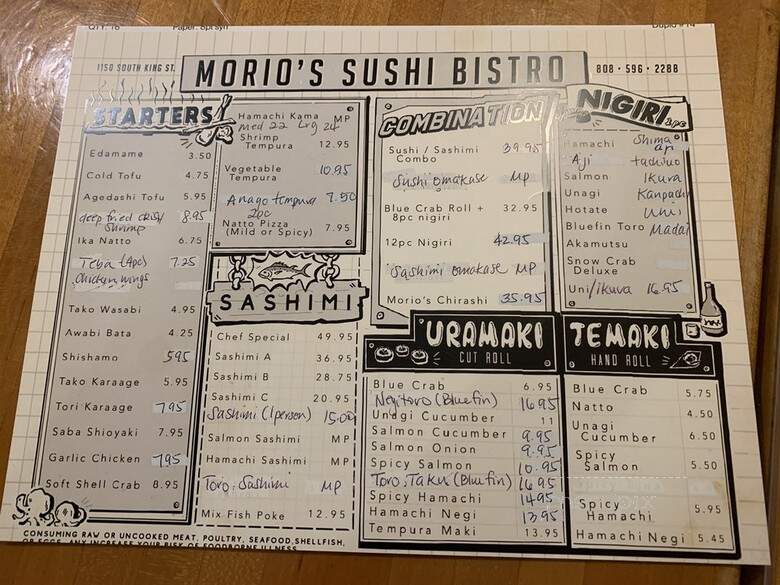 QTY: 16
1150 SOUTH KING ST.
MORIO'S SUSHI BISTRO
808 · 596 · 2288
STARTERS
Edamame 3.50
Cold Tofu 4.75
Agedashi Tofu 5.95
deep fried crispy shrimp 8.95
Ika Natto 6.75
Teba (4pc) 7.25
chicken wings
Tako Wasabi 4.95
Awabi Bata 4.25
Shishamo 5.95
Tako Karaage 5.95
Tori Karaage 7.95
Saba Shioyaki 7.95
Garlic Chicken 7.95
Soft Shell Crab 8.95
Hamachi Kama MP
med 22 Lrg 24
Shrimp
Tempura 12.95
Vegetable
Tempura 10.95
Anago tempura 7.50
2pc
Natto Pizza
(Mild or Spicy) 7.95
SASHIMI
Chef Special 49.95
Sashimi A 36.95
Sashimi B 28.75
Sashimi C 20.95
Sashimi (1person) 15.00
Salmon Sashimi MP
Hamachi Sashimi MP
Toro Sashimi MP
Mix Fish Poke 12.95
COMBINATION
Sushi / Sashimi
Combo 39.95
Sushi omakase MP
Blue Crab Roll +
8pc nigiri 32.95
12pc Nigiri 42.95
Sashimi omakase MP
Morio's Chirashi 35.95
NIGIRI 2pc
Hamachi Shima aji
Aji tachiuo
Salmon Ikura
Unagi Kanpachi
Hotate Uni
Bluefin Toro Madai
Akamutsu
Snow Crab
Deluxe
Uni/ikura 16.95
URAMAKI
CUT ROLL
Blue Crab 6.95
Negitoro (Bluefin) 16.95
Unagi Cucumber 11
Salmon Cucumber 9.95
Salmon Onion 9.95
Spicy Salmon 10.95
Toro, Taku (Bluefin) 16.95
Spicy Hamachi 14.95
Hamachi Negi 13.95
Tempura Maki 13.95
TEMAKI
HAND ROLL
Blue Crab 5.75
Natto 4.50
Unagi
Cucumber 6.50
Spicy
Salmon 5.50
Spicy
Hamachi 5.95
Hamachi Negi 5.45
CONSUMING RAW OR UNCOOKED MEAT, POULTRY, SEAFOOD,SHELLFISH,
OR EGGS, ANY INCREASE YOUR RISK OF FOODBORNE ILLNESS